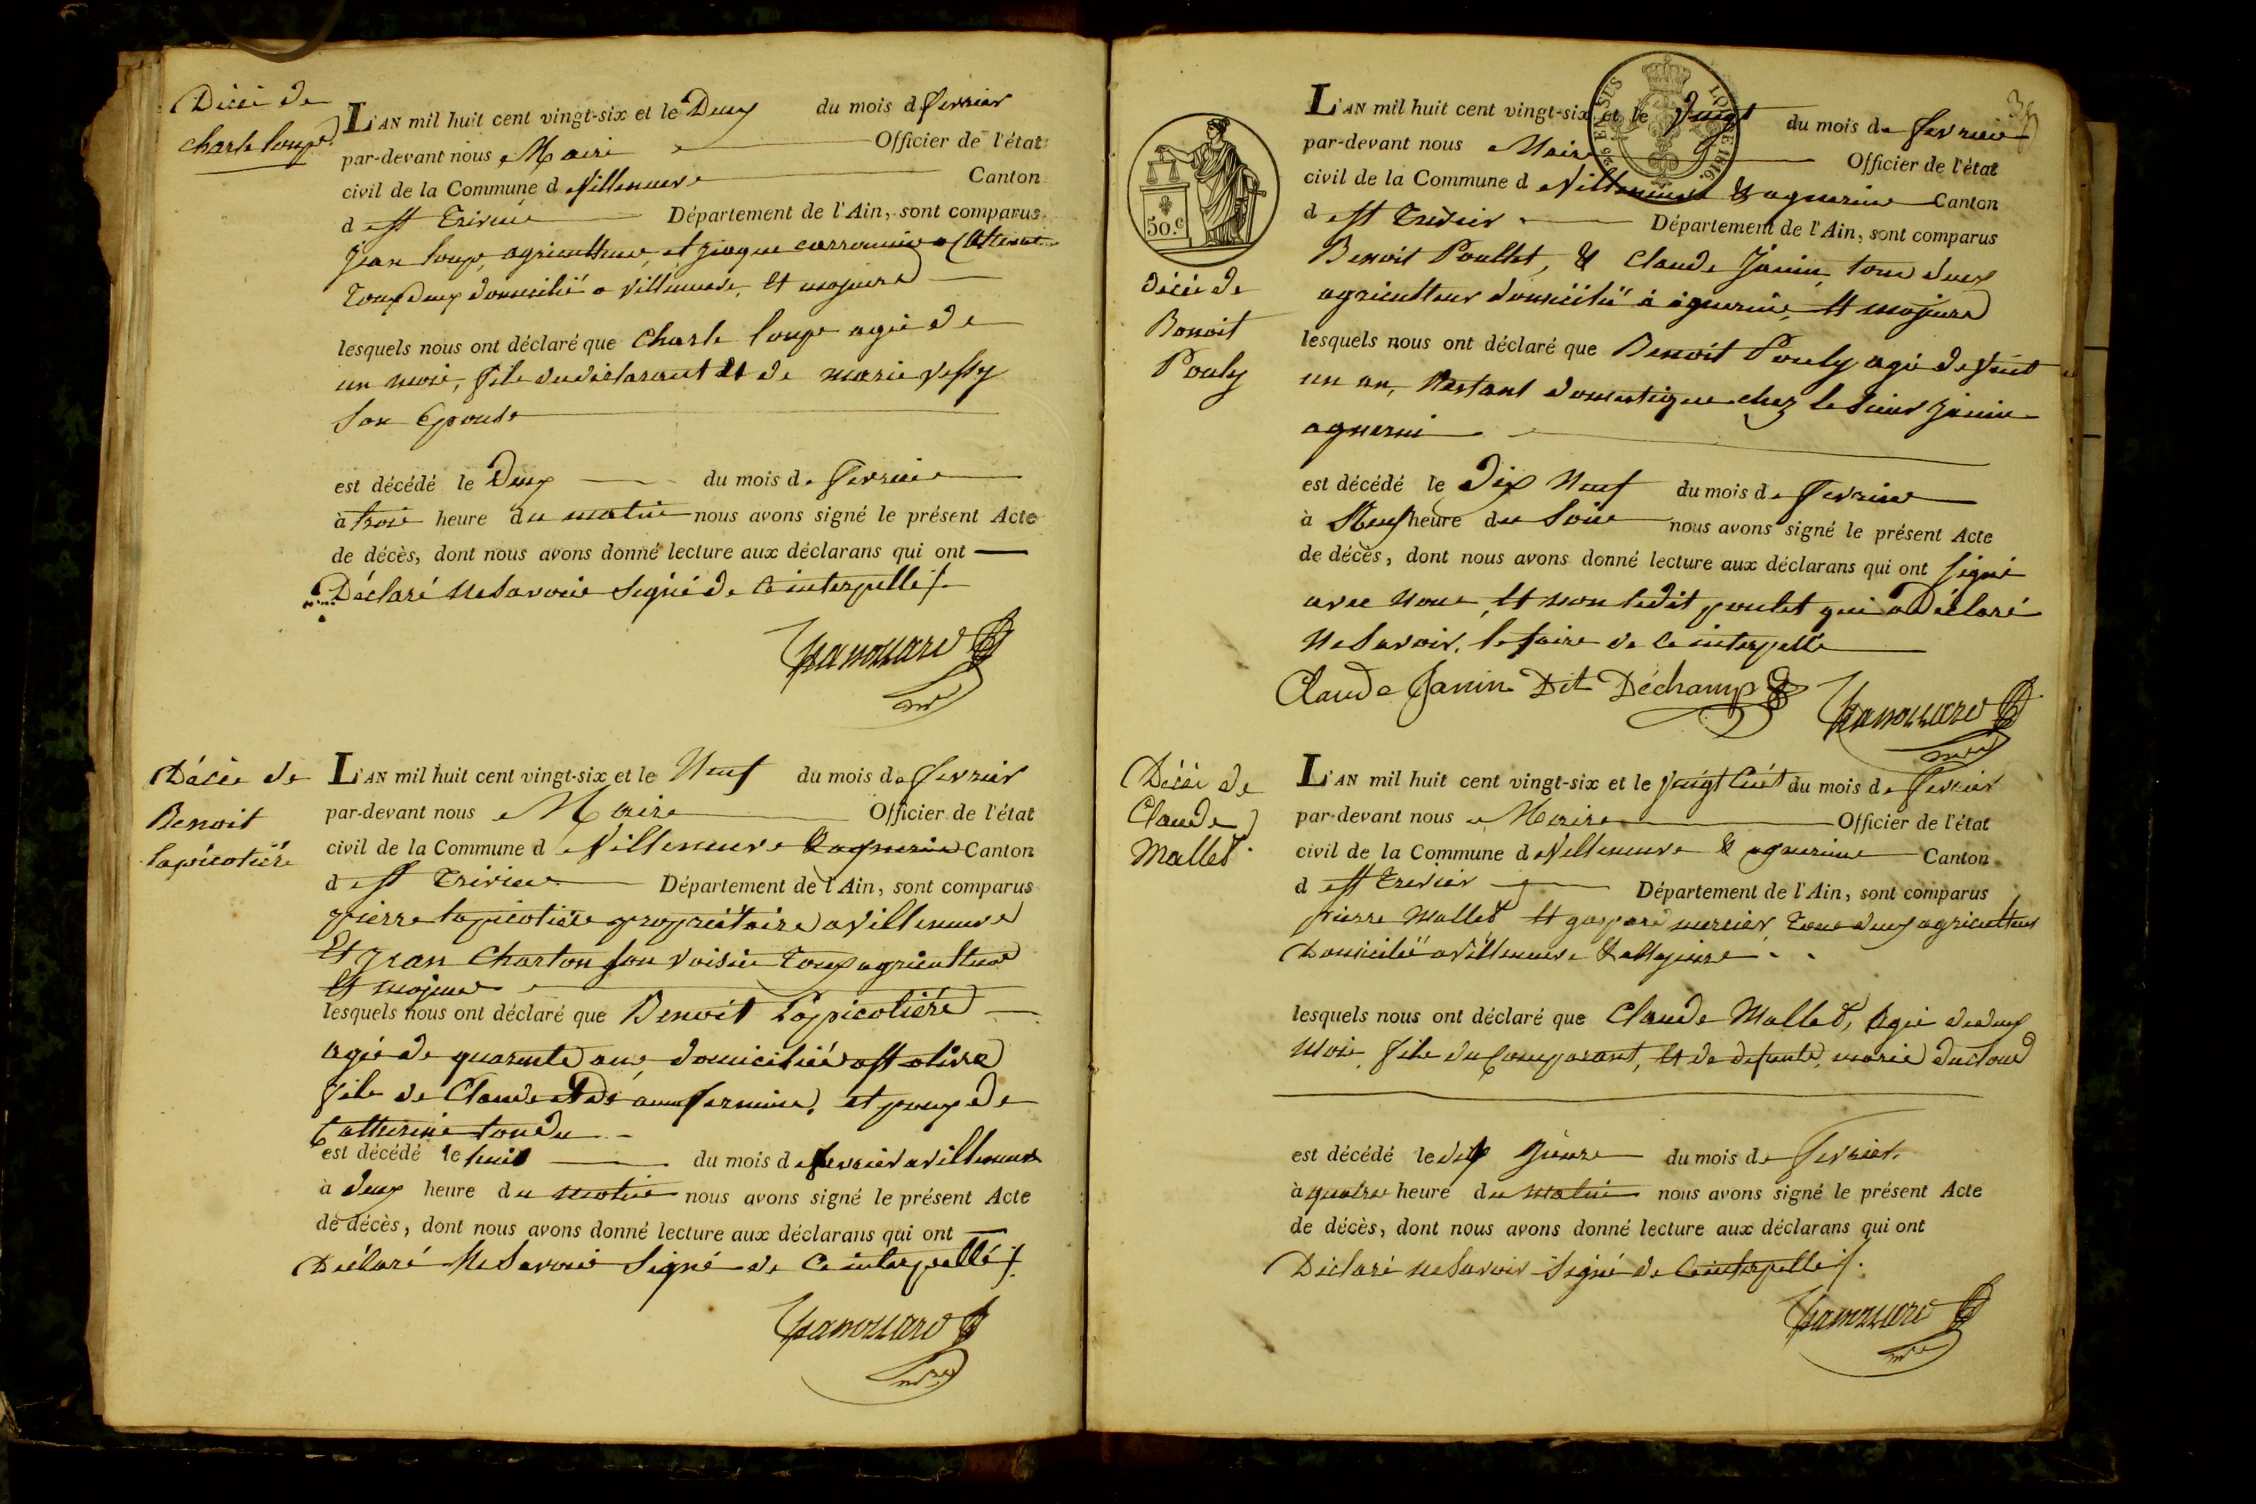 Décé de
charle loup
L'AN mil huit cent vingt-six et le Deux du mois de fevrier
par-devant nous Maire Officier de l'état
civil de la Commune d villeneuve Canton
d st Trivié Département de l'Ain, sont comparus
jean loup, agriculteur, et
Tous deux domicilié a villeneuve, et majeurs
lesquels nous ont déclaré que charle loup agé de
un mois, fils du déclarant et de marie
son Epouse
est décédé le Deux du mois de fevrier
à trois heure du matin nous avons signé le présent Acte
de décès, dont nous avons donné lecture aux déclarans qui ont
Déclaré ne savoir signé de ce interpellé
Décée de
Benoit
lapicotiére
L'AN mil huit cent vingt-six et le Neuf du mois de fevrier
par-devant nous Maire Officier de l'état
civil de la Commune d villeneuve & agnerein Canton
d st Trivier Département de l'Ain, sont comparus
pierre lapicotiére propriétaire a villeneuve
Et jean Charton son voisin Tous agriculteur
et majeur
lesquels nous ont déclaré que Benoit Lapicotiére
agé de quarente ans domicilié a st olive
fils de Claude et de fermine, et poux de
Catherine tondu
est décédé le huit du mois de fevrier a villeneuve
à deux heure du matin nous avons signé le présent Acte
de décès, dont nous avons donné lecture aux déclarans qui ont
Déclaré Ne savoir signé de ce interpellé
50.c
Décée de
Benoit
Pouly
L'AN mil huit cent vingt-six et le vingt du mois de fevrier
par-devant nous Maire Officier de l'état
civil de la Commune d villeneuve & agnerein Canton
d st Trivier Département de l'Ain, sont comparus
Benoit Poullet, & Claude Janin tous deux
agriculteur domicilié à agnerein, et majeurs
lesquels nous ont déclaré que Benoit Pouly agé de vint
un an, Restant domestique chez le sieur janin
agnerin
est décédé le Dix Neuf du mois de fevrier
à Neuf heure du soir nous avons signé le présent Acte
de décès, dont nous avons donné lecture aux déclarans qui ont signé
avec nous et non ledit poulet qui a Déclaré
ne savoir le faire de ce interpellé
Claude Janin Dit Déchamp
Décée de
Claude
Mallet
L'AN mil huit cent vingt-six et le vingt du mois de fevrier
par-devant nous Maire Officier de l'état
civil de la Commune d villeneuve & agnerein Canton
d st Trivier Département de l'Ain, sont comparus
pierre Mallet et gaspard mercier Tous deux agriculteur
Domicilié a villeneuve & Majeure
lesquels nous ont déclaré que Claude Mallet, agé de deux
mois, fils du Comparant, et de defunte marie
est décédé le du mois de fevrier
à quatre heure du matin nous avons signé le présent Acte
de décès, dont nous avons donné lecture aux déclarans qui ont
Déclaré ne savoir signé de ce interpellé